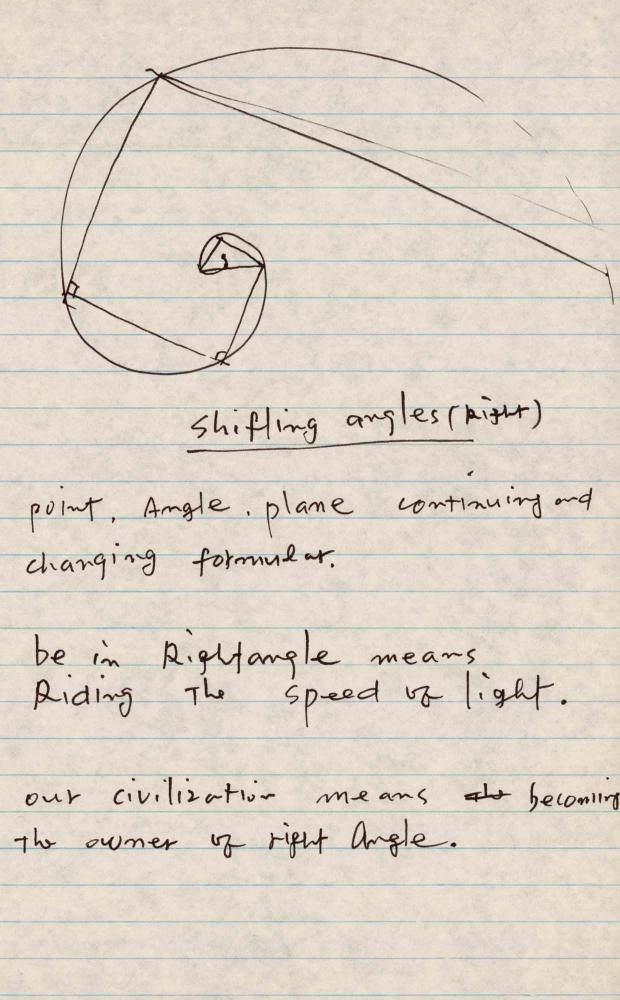 shifting angles (Right)
point, Angle, plane continuing and
changing formular.
be in Rightangle means
Riding The speed of light.
our civilization means becoming
The owner of right Angle.